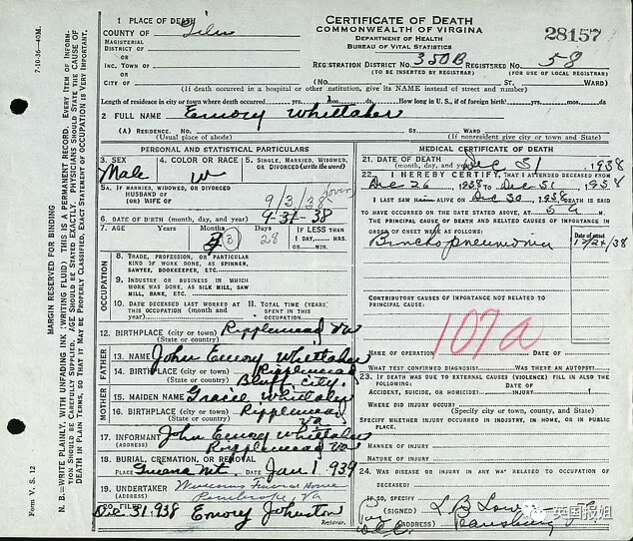 7-10-36-40M.
MARGIN RESERVED FOR BINDING
N. B.—WRITE PLAINLY, WITH UNFADING INK (WRITING FLUID) THIS IS A PERMANENT RECORD. Every Item of Information Should be Carefully Supplied. AGE Should be Stated EXACTLY. PHYSICIANS Should State the CAUSE OF DEATH in Plain Terms, so That it May be Properly Classified. Exact Statement of OCCUPATION is Very Important.
Form V. S. 12
CERTIFICATE OF DEATH
COMMONWEALTH OF VIRGINIA
DEPARTMENT OF HEALTH
BUREAU OF VITAL STATISTICS
28157
1 PLACE OF DEATH
COUNTY OF Giles
MAGISTERIAL DISTRICT OF
OR
INC. TOWN OF
OR
CITY OF
REGISTRATION DISTRICT NO. 350B REGISTERED NO. 58
(TO BE INSERTED BY REGISTRAR) (FOR USE OF LOCAL REGISTRAR)
(No. ST. WARD)
(If death occurred in a hospital or other institution, give its NAME instead of street and number)
Length of residence in city or town where death occurred yrs. mos. ds. How long in U. S., if of foreign birth? yrs. mos. da.
2 FULL NAME Emory Whittaker
(A) RESIDENCE. No. ST. WARD
(Usual place of abode) (If nonresident give city or town and State)
PERSONAL AND STATISTICAL PARTICULARS
3. SEX Male
4. COLOR OR RACE W
5. SINGLE, MARRIED, WIDOWED, OR DIVORCED (write the word)
5A. IF MARRIED, WIDOWED, OR DIVORCED
HUSBAND OF
(OR) WIFE OF
9/3/38
6. DATE OF BIRTH (month, day, and year) 9-31-38
7. AGE Years Months 3 Days 28 IF LESS THAN 1 DAY, HRS. OR MIN.
OCCUPATION
8. TRADE, PROFESSION, OR PARTICULAR KIND OF WORK DONE, AS SPINNER, SAWYER, BOOKKEEPER, ETC.
9. INDUSTRY OR BUSINESS IN WHICH WORK WAS DONE, AS SILK MILL, SAW MILL, BANK, ETC.
10. DATE DECEASED LAST WORKED AT THIS OCCUPATION (month and year)
11. TOTAL TIME (YEARS) SPENT IN THIS OCCUPATION.
12. BIRTHPLACE (city or town) Ripplemead Va
(State or country)
FATHER
13. NAME John Emory Whittaker
14. BIRTHPLACE (city or town) Ripplemead
(State or country) Bluff City.
MOTHER
15. MAIDEN NAME Gracie Whittaker
16. BIRTHPLACE (city or town) Ripplemead
(State or country) Va
17. INFORMANT John Emory Whittaker
(ADDRESS) Ripplemead Va
18. BURIAL, CREMATION, OR REMOVAL
PLACE DATE Jan 1 939
19. UNDERTAKER Funeral Home
(ADDRESS) Pembroke, Va
20. FILED Dec 31, 938 Emory Johnston
Registrar.
MEDICAL CERTIFICATE OF DEATH
21. DATE OF DEATH
(month, day, and year) Dec 31 1938
22. I HEREBY CERTIFY, THAT I ATTENDED DECEASED FROM
Dec 26 1938 TO Dec 31 1938
I LAST SAW HIM ALIVE ON Dec 30 1938 DEATH IS SAID
TO HAVE OCCURRED ON THE DATE STATED ABOVE, AT 5 a M.
THE PRINCIPAL CAUSE OF DEATH AND RELATED CAUSES OF IMPORTANCE IN ORDER OF ONSET WERE AS FOLLOWS: Date of onset
Bronchopneumonia 12/26/38
CONTRIBUTORY CAUSES OF IMPORTANCE NOT RELATED TO PRINCIPAL CAUSE:
107a
NAME OF OPERATION DATE OF
WHAT TEST CONFIRMED DIAGNOSIS? WAS THERE AN AUTOPSY?
23. IF DEATH WAS DUE TO EXTERNAL CAUSES (VIOLENCE) FILL IN ALSO THE FOLLOWING:
ACCIDENT, SUICIDE, OR HOMICIDE? DATE OF INJURY
WHERE DID INJURY OCCUR?
(Specify city or town, county, and State)
SPECIFY WHETHER INJURY OCCURRED IN INDUSTRY, IN HOME, OR IN PUBLIC PLACE.
MANNER OF INJURY
NATURE OF INJURY
24. WAS DISEASE OR INJURY IN ANY WAY RELATED TO OCCUPATION OF DECEASED?
IF SO, SPECIFY
(SIGNED) L B
(ADDRESS) Pearisburg
英国报姐